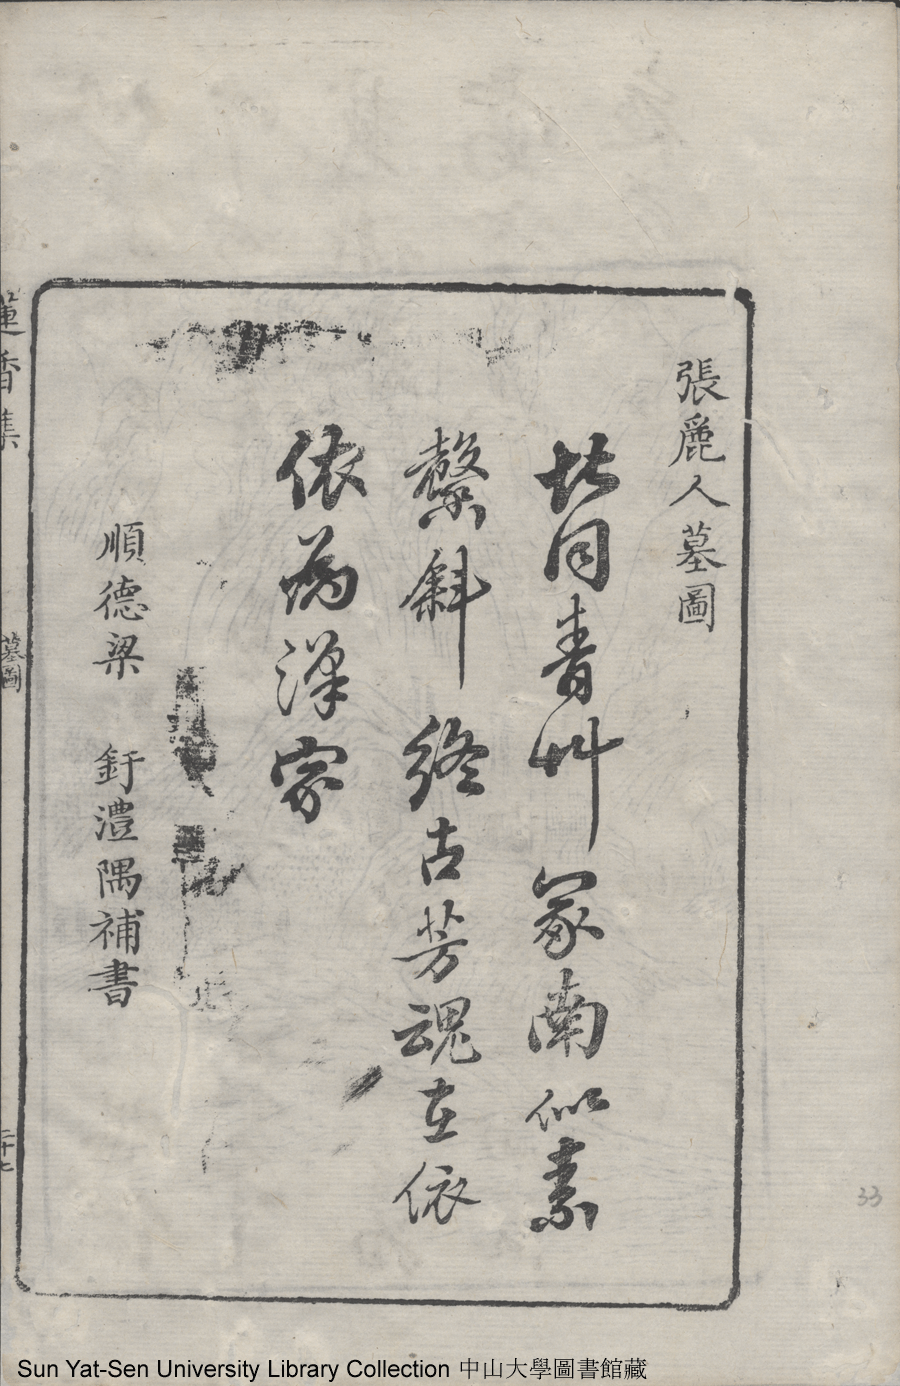 張麗人墓圖
北同青艸冢南似素
馨斜終古芳魂在依
依為漢家
順德梁 釪澧隅補書
蓮香集
墓圖
二十七
33
Sun Yat-Sen University Library Collection 中山大學圖書館藏